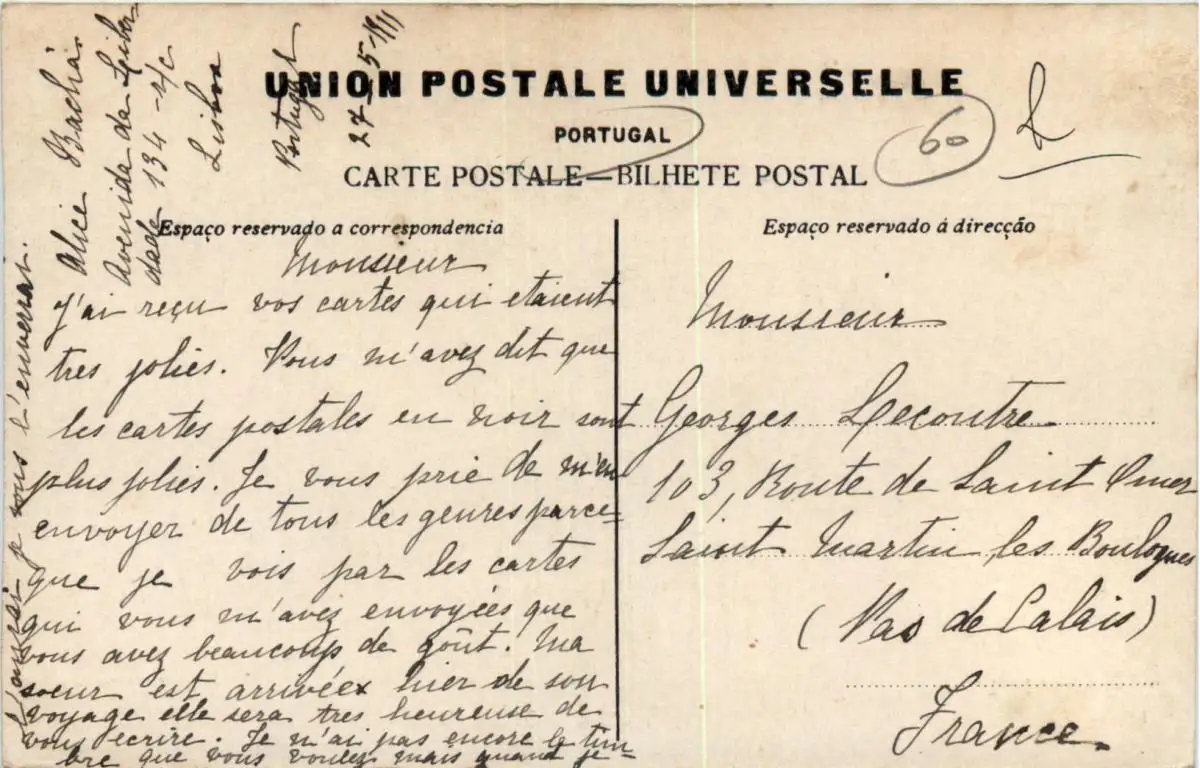 Alice Bachá.
Avenida da Liber-
dade 134 - r/c
Lisboa
Portugal
27-5-1911
UNION POSTALE UNIVERSELLE
PORTUGAL
CARTE POSTALE—BILHETE POSTAL
60
Espaço reservado a correspondencia
Monsieur
J'ai reçu vos cartes qui etaient
tres jolies. Vous m'avez dit que
les cartes postales en noir sont
plus jolies. Je vous prie de m'en
envoyer de tous les genres parce-
que je vois par les cartes
qui vous m'avez envoyées que
vous avez beaucoup de goût. Ma
soeur est arrivée hier de son
voyage elle sera tres heureuse de
vous ecrire. Je n'ai pas encore le tim-
bre que vous voulez mais quand je
l'aurai je vous l'enverrai.
Espaço reservado á direcção
Monsieur
Georges Lecoutre
103, Route de Saint Omer
Saint Martin les Boulognes
(Pas de Calais)
France.